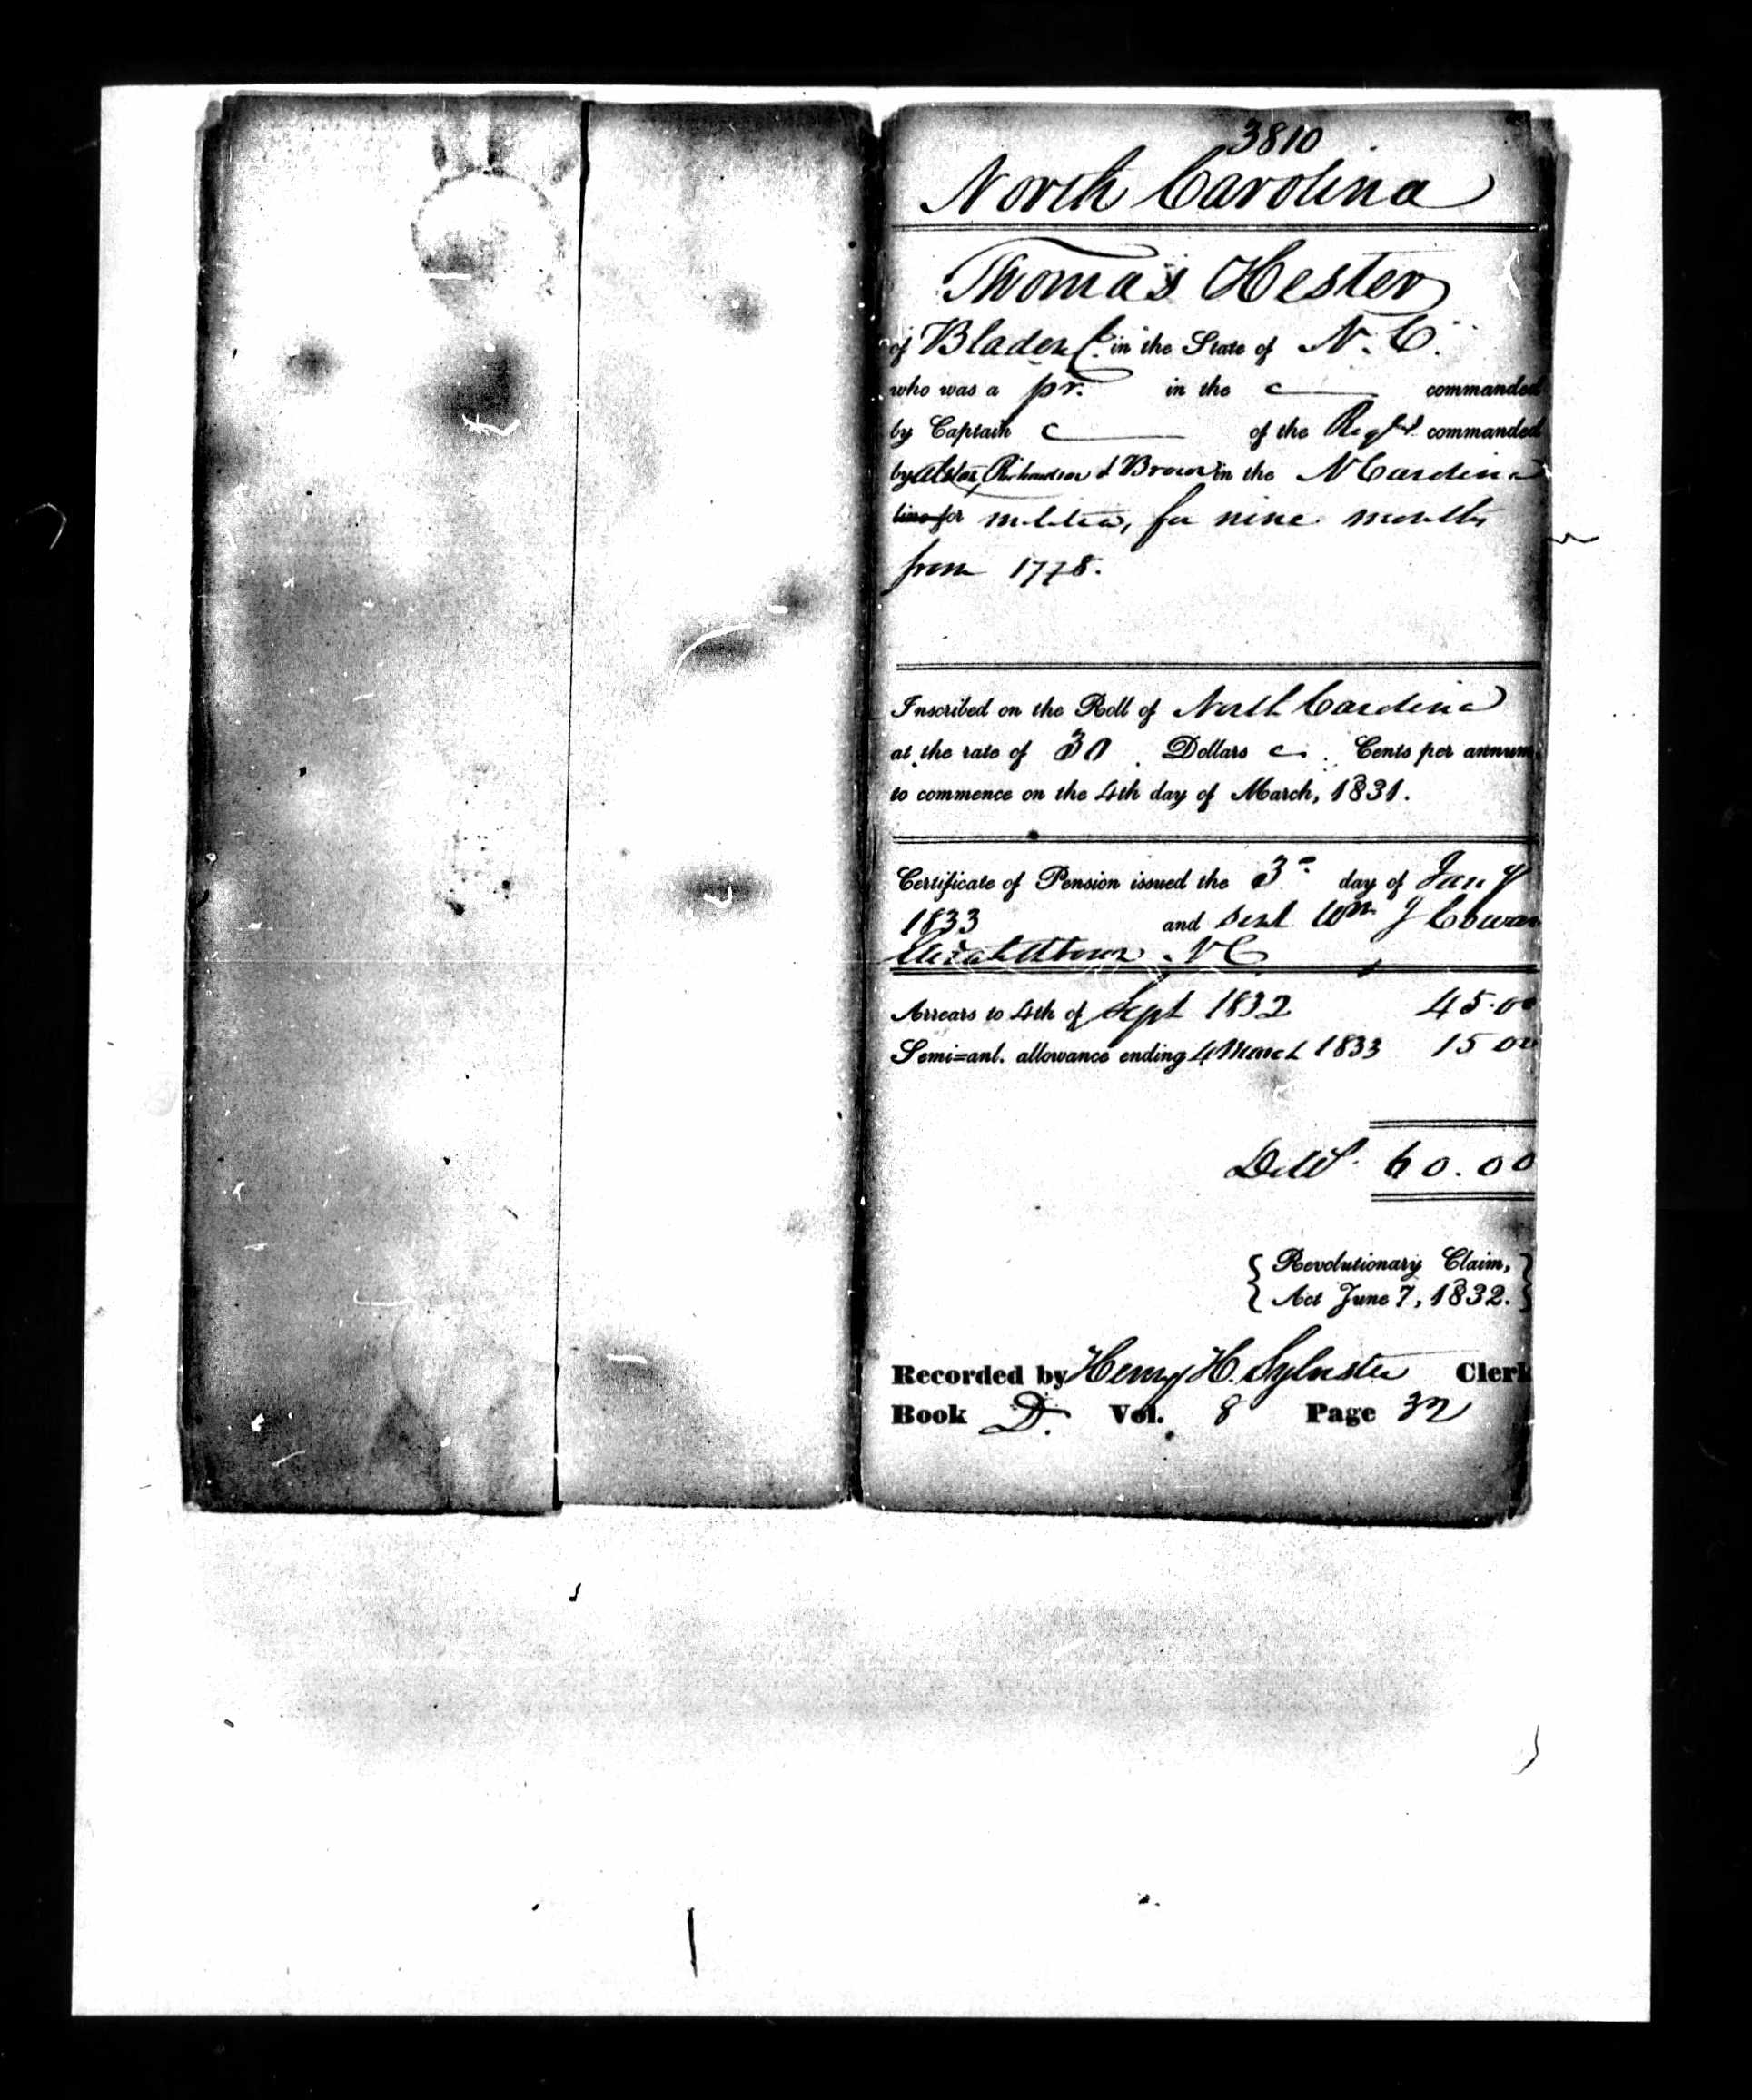 3810
North Carolina
Thomas Hester
of Bladen Co. in the State of N. C.
who was a pr. in the commanded
by Captain of the Regt. commanded
by Alston, Richardson & Brown in the N Carolina
line for militia, for nine months
from 1778.
Inscribed on the Roll of North Carolina
at the rate of 30 Dollars Cents per annum
to commence on the 4th day of March, 1831.
Certificate of Pension issued the 3d day of Jany
1833 and sent Wm J Cowan
Elizabethtown N C
Arrears to 4th of Sept 1832 45.00
Semi-anl. allowance ending 4 March 1833 15 00
60.00
{ Revolutionary Claim, }
{ Act June 7, 1832. }
Recorded by Henry H. Sylvester Clerk
Book D. Vol. 8 Page 32